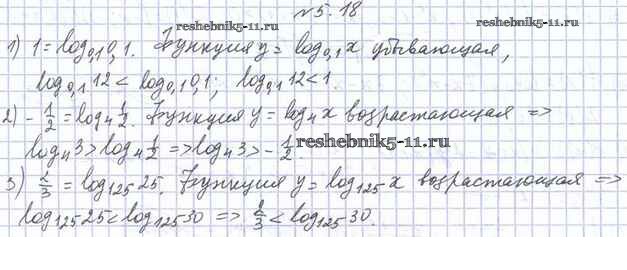 №5.18
reshebnik5-11.ru
1) 1 = log₀,₁ 0,1. Функция y = log₀,₁ x убывающая,
log₀,₁ 12 < log₀,₁ 0,1; log₀,₁ 12 < 1.
2) - 1/2 = log₄ 1/2. Функция y = log₄ x возрастающая =>
log₄ 3 > log₄ 1/2 => log₄ 3 > - 1/2.
reshebnik5-11.ru
3) 2/3 = log₁₂₅ 25. Функция y = log₁₂₅ x возрастающая =>
log₁₂₅ 25 < log₁₂₅ 30 => 2/3 < log₁₂₅ 30.
reshebnik5-11.ru